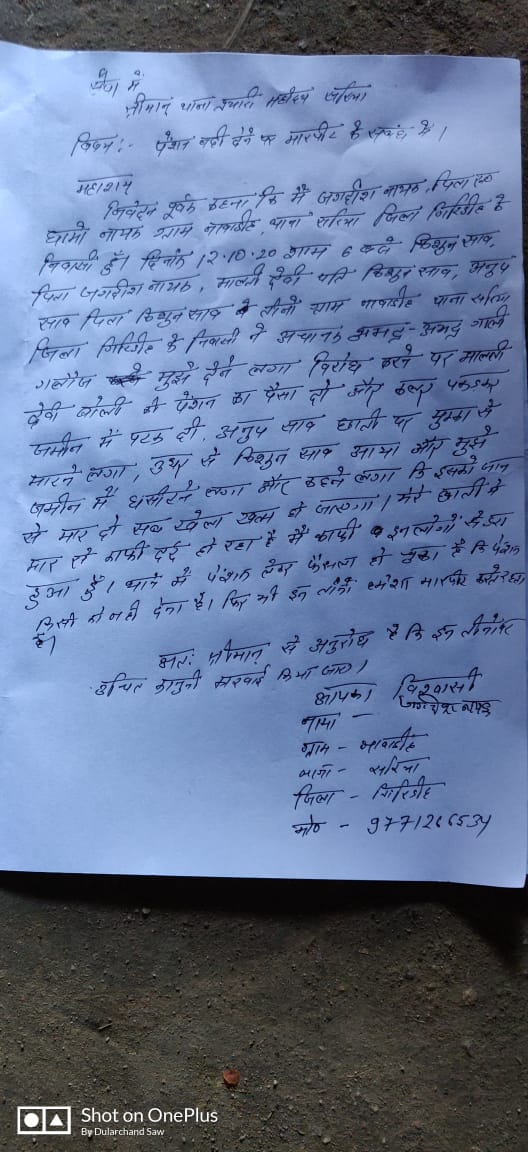 सेवा में
श्रीमान् थाना प्रभारी महोदय सरिया
विषय:- पेंशन नहीं देने पर मारपीट के संबंध में।
महाशय
निवेदन पूर्वक कहना कि मैं जगदीश नायक, पिता स्व०
घामो नायक ग्राम नावाडीह, थाना सरिया जिला गिरिडीह के
निवासी हूँ। दिनांक 12.10.20 शाम 6 बजे किशुन साव,
पिता जगदीश नायक, मालती देवी पति किशुन साव, अनुप
साव पिता किशुन साव तीनों ग्राम नावाडीह थाना सरिया
जिला गिरिडीह के निवासी ने अचानक अभद्र-अभद्र गाली
गलौज मुझे देने लगा विरोध करने पर मालती
देवी बोली की पेंशन का पैसा दो और कलर पकड़कर
जमीन में पटक दी, अनुप साव छाती पर मुक्का से
मारने लगा, उधर से किशुन साव आया और मुझे
जमीन में घसीटने लगा और कहने लगा कि इसको जान
से मार दो सब खेला खत्म हो जाएगा। मेरे छाती में
मार से काफी दर्द हो रहा है मैं काफी इन लोगों से डरा
हुआ हूँ। थाने में पेंशन लेकर फैसला हो चुका है कि पेंशन
किसी को नहीं देना है। फिर भी इन लोगों हमेशा मारपीट
है।
अतः श्रीमान् से अनुरोध है कि इन तीनों पर
उचित कानुनी करवाई किया जाए।
आपका विश्वासी
नाम - जगदीश नायक
ग्राम - नावाडीह
थाना - सरिया
जिला - गिरिडीह
मो० - 9771266534
Shot on OnePlus
By Dularchand Saw